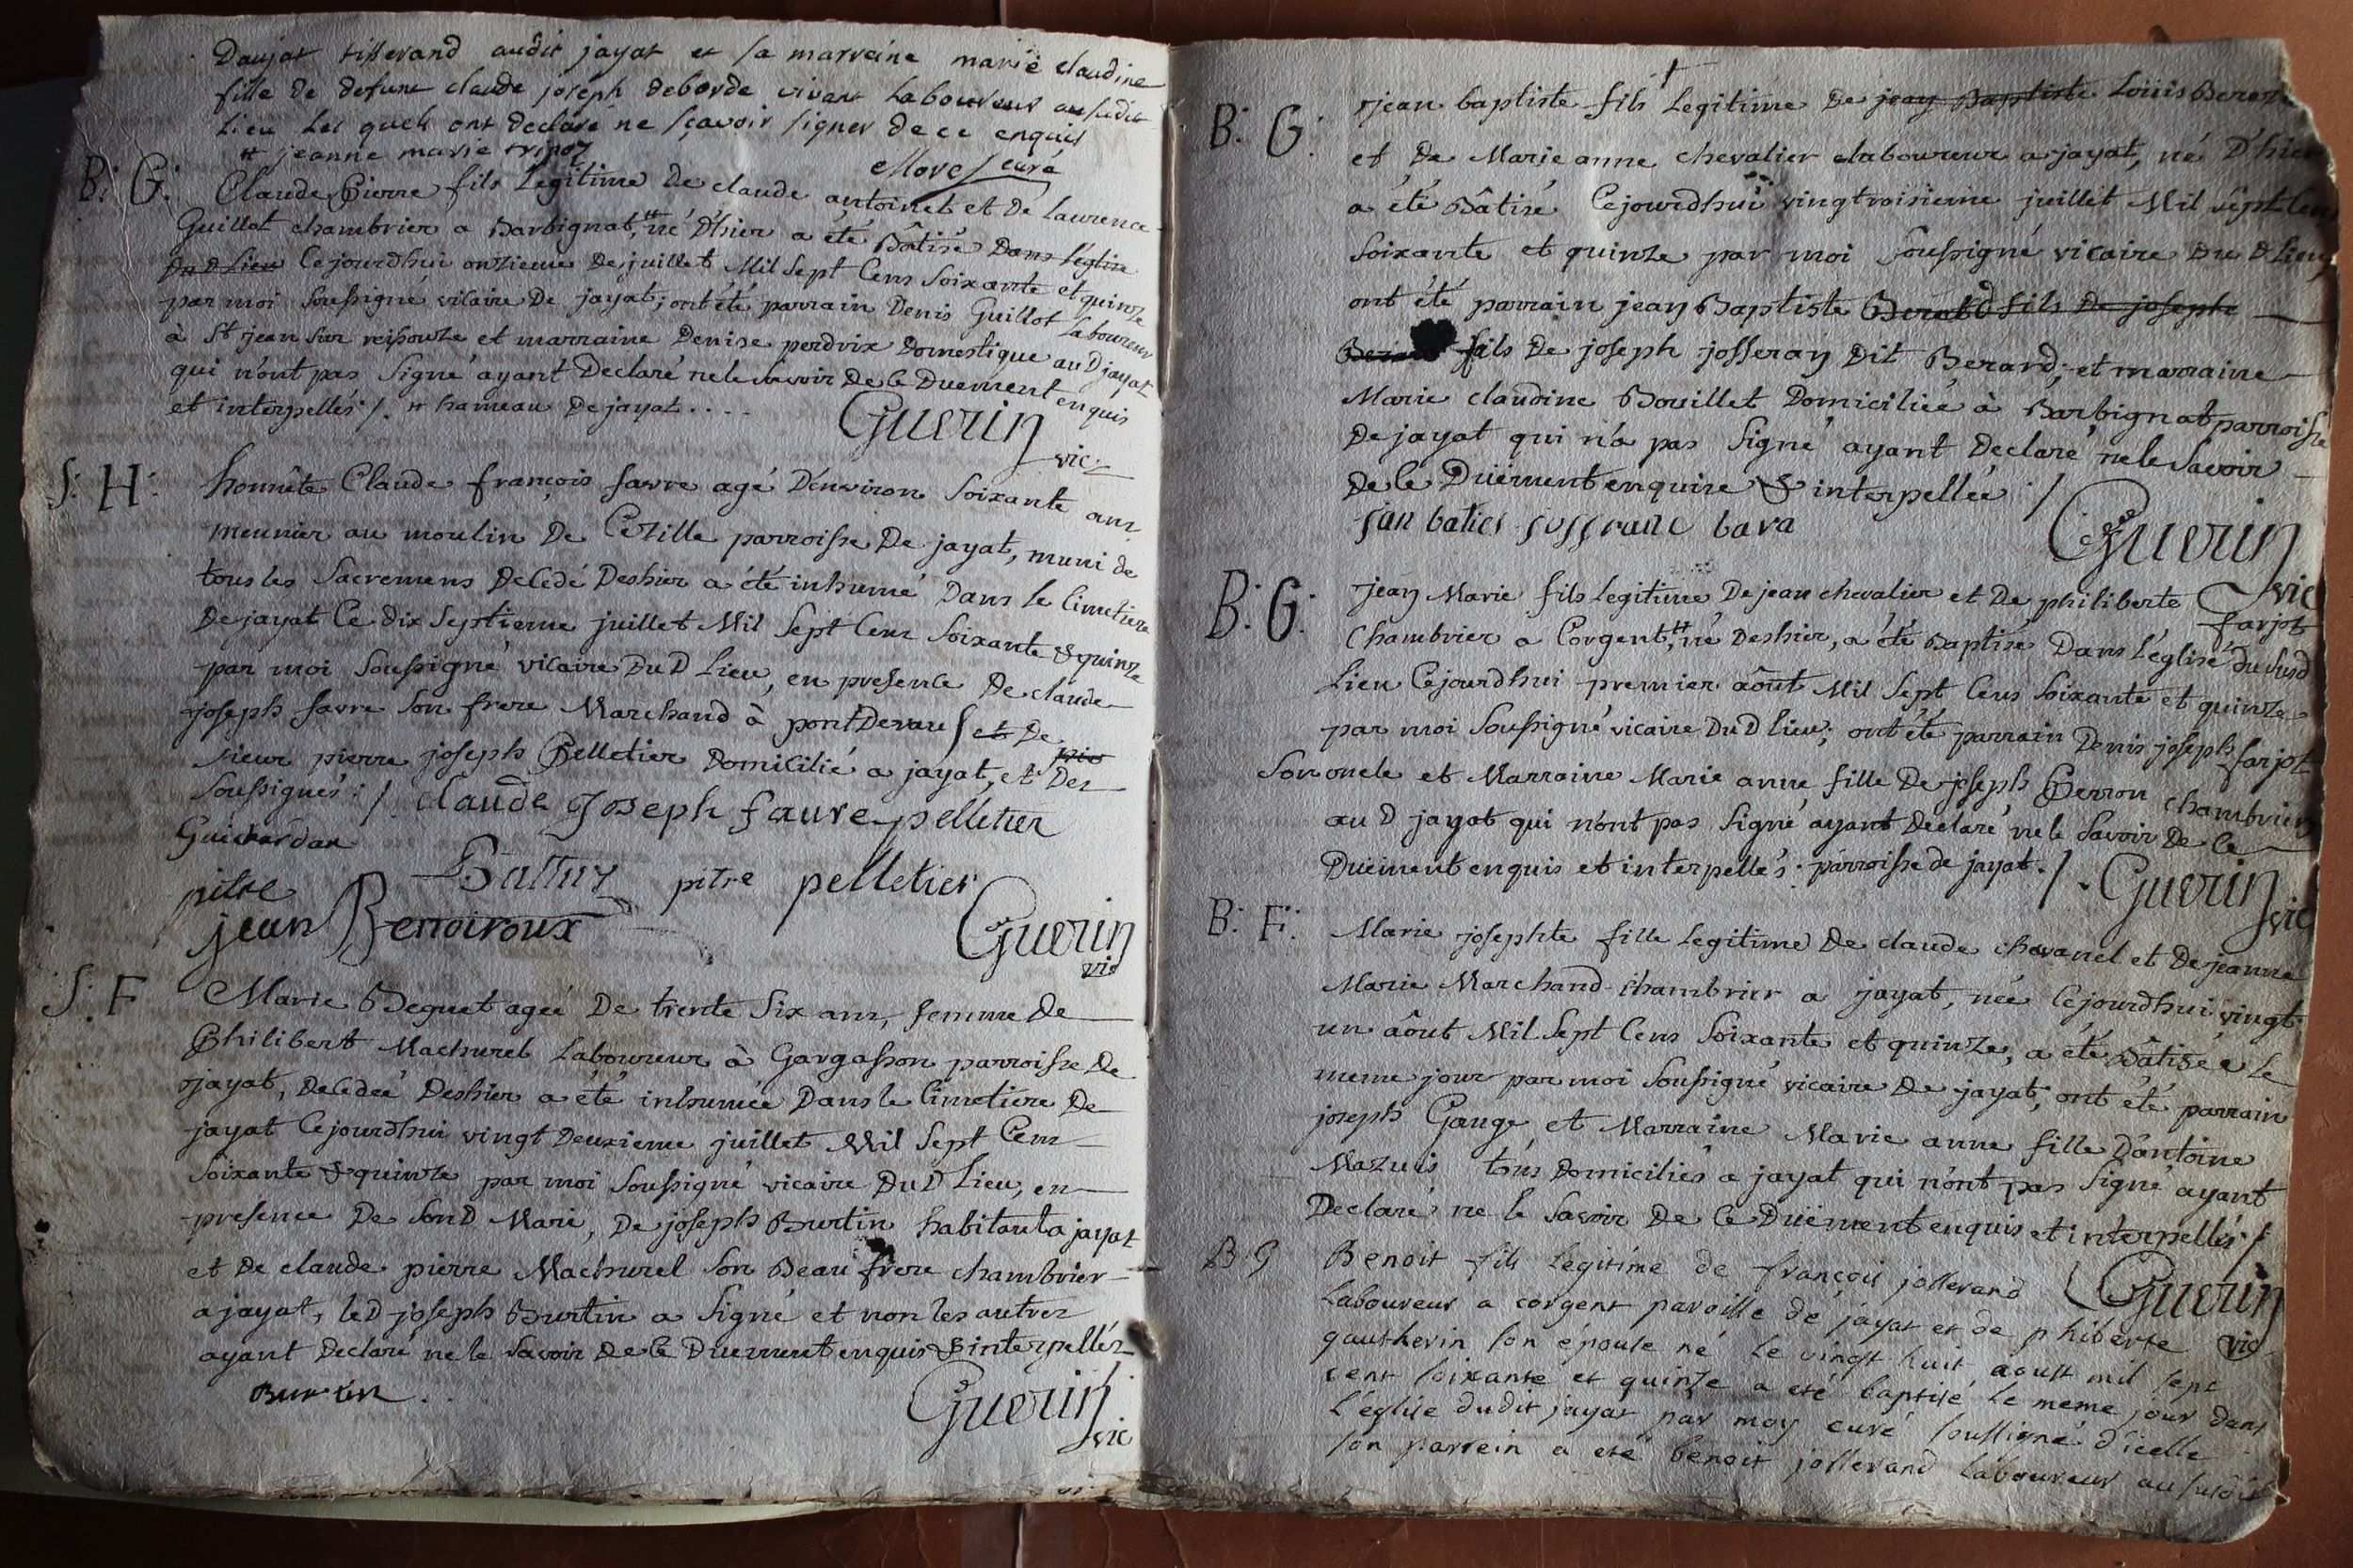 Daujat tisserand audit jayat et sa marreine marie claudine
fille de defunt claude joseph deborde vivant Laboureur au susdit
Lieu Les quels ont declaré ne sçavoir signer de ce enquis
# jeanne marie tripoz
More curé
B: G: Claude Pierre fils Legitime De claude antoinet et De Laurence
Guillot chambrier a Barbignat,# né D'hier a été Bâtisé Dans l'église
Du D Lieu Cejourdhui onzieme De juillet Mil Sept Cens Soixante et quinze
par moi Soussigné vicaire De jayat; ont été parrain Denis Guillot Laboureur
à St jean sur reisouze et marraine Denise perdrix Domestique au D jayat
qui n'ont pas Signé ayant Declaré ne le Savoir De Ce Duement enquis
et interpellés ./. # hameau De jayat....
Guerin
vic:
S: H: honnête Claude françois favre agé D'environ Soixante ans
meunier au moulin De Cezille parroisse De jayat, muni de
tous les Sacremens Decedé Deshier a été inhumé Dans le Cimetiere
De jayat Ce dix Septieme juillet Mil Sept Cens Soixante & quinze
par moi Soussigné vicaire Du D Lieu, en presence De claude
joseph favre Son frere Marchand à pontDevaux et De
sieur pierre joseph Pelletier Domicilié a jayat, et Des
Soussignés :/. claude Joseph faure pelletier
Guichardan
pitre pitre pelletier
jean Benoiroux
Guerin
vic
S: F Marie Beguet ageé De trente Six ans, femme De
Philibert Machurel Laboureur à Gargasson parroisse De
jayat, Decedeé Deshier a été inhumeé Dans le Cimetiere De
jayat Cejourdhui vingt Deuxieme juillet Mil Sept Cens
Soixante & quinze par moi Soussigné vicaire Du D Lieu, en
presence De Son D Mari, De joseph Burtin habitant a jayat
et De claude pierre Machurel Son Beau frere chambrier
a jayat, le D joseph Burtin a Signé et non les autres
ayant Declaré ne le Savoir De Ce Duement enquis & interpellés
Burtin .
Guerin
vic
B: G: jean baptiste fils Legitime De jean Baptiste Loüis
et De Marie anne chevalier laboureur a jayat, né D'hier
a été Bâtisé Cejourdhui vingtroisieme juillet Mil Sept Cens
Soixante et quinze par moi Soussigné vicaire Du D Lieu
ont été parrain jean Baptiste Berard fils De joseph
fils De joseph josseran Dit Berard; et marraine
Marie claudine Bouillet Domiciliée à Barbignat parroisse
De jayat qui n'a pas Signé ayant Declaré ne le Savoir
De Ce Düement enquise & interpellée ./
jan baties bara
Guerin
vic
B: G: jean Marie fils Legitime De jean chevalier et De philiberte farjot
Chambrier a Corgent,# né Deshier, a été Baptisé Dans l'église Du Susd
Lieu Cejourdhui premier aôut Mil Sept Cens Soixante et quinze
par moi Soussigné vicaire Du D lieu; ont été parrain Denis joseph farjot
Son oncle et Marraine Marie anne fille De joseph Perron chambrier
au D jayat qui n'ont pas Signé ayant Declaré ne le Savoir De Ce
Düement enquis et interpellés: parroisse de jayat ./. Guerin
vic
B: F: Marie josephte fille Legitime De claude chavanel et De jeanne
Marie Marchand chambrier a jayat, née Cejourdhui vingt
un aôut Mil Sept Cens Soixante et quinze, a été Bâtisée le
meme jour par moi Soussigné vicaire De jayat, ont été parrain
joseph Gange et Marraine Marie anne fille D'antoine
Mazuis tous Domiciliés a jayat qui n'ont pas Signé ayant
Declaré ne le Savoir De Ce Düement enquis et interpellés /
Guerin
vic
B G Benoit fils Legitime de françois josserand
Laboureur a corgent paroisse de jayat et de phiberte
gautherin son épouse né Le vingt huit aoust mil sept
cent soixante et quinze a eté baptisé Le meme jour dans
L'église dudit jayat par moy curé soussigné d'icelle
son parrein a eté benoit josserand Laboureur au susdit